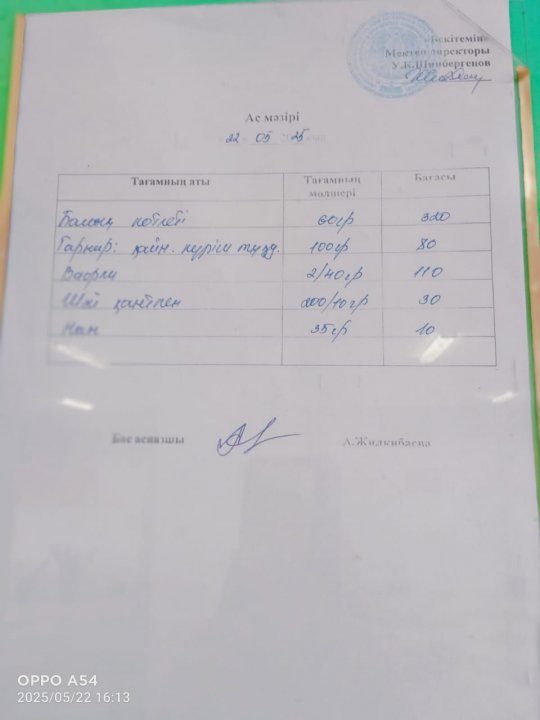 «Бекітемін»
Мектеп директоры
У.К.Шинбергенов
Ас мәзірі
22 05 25
Тағамның аты Тағамның мөлшері Бағасы
Балық котлеті 60гр 320
Гарнир: қайн. күріш тұзд. 100гр 80
Вафли 2/40гр 110
Шай қантпен 200/10гр 30
Нан 35гр 10
Бас аспазшы А.Жилкибаева
OPPO A54
2025/05/22 16:13